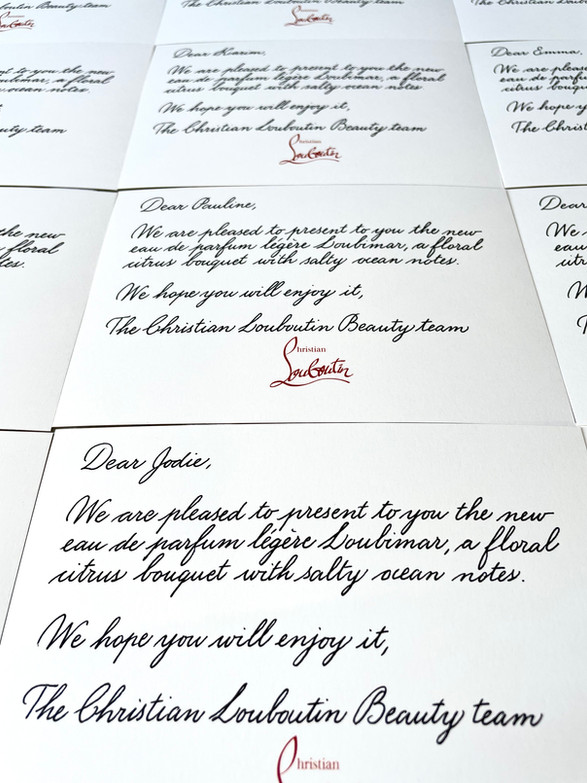 Louboutin Beauty team
Louboutin
The Christian Louboutin Beauty team
Louboutin
to you the new
a floral
ocean notes.
team
Dear Karim,
We are pleased to present to you the new
eau de parfum légère Loubimar, a floral
citrus bouquet with salty ocean notes
We hope you will enjoy it,
The Christian Louboutin Beauty team
Christian
Louboutin
Dear Emma,
We are
eau de
citrus
We hope
The
the new
floral
Dear Pauline,
We are pleased to present to you the new
eau de parfum légère Loubimar, a floral
citrus bouquet with salty ocean notes.
We hope you will enjoy it,
The Christian Louboutin Beauty team
Christian
Louboutin
Dear
We
eau
Dear Jodie,
We are pleased to present to you the new
eau de parfum légère Loubimar, a floral
citrus bouquet with salty ocean notes.
We hope you will enjoy it,
The Christian Louboutin Beauty team
Christian